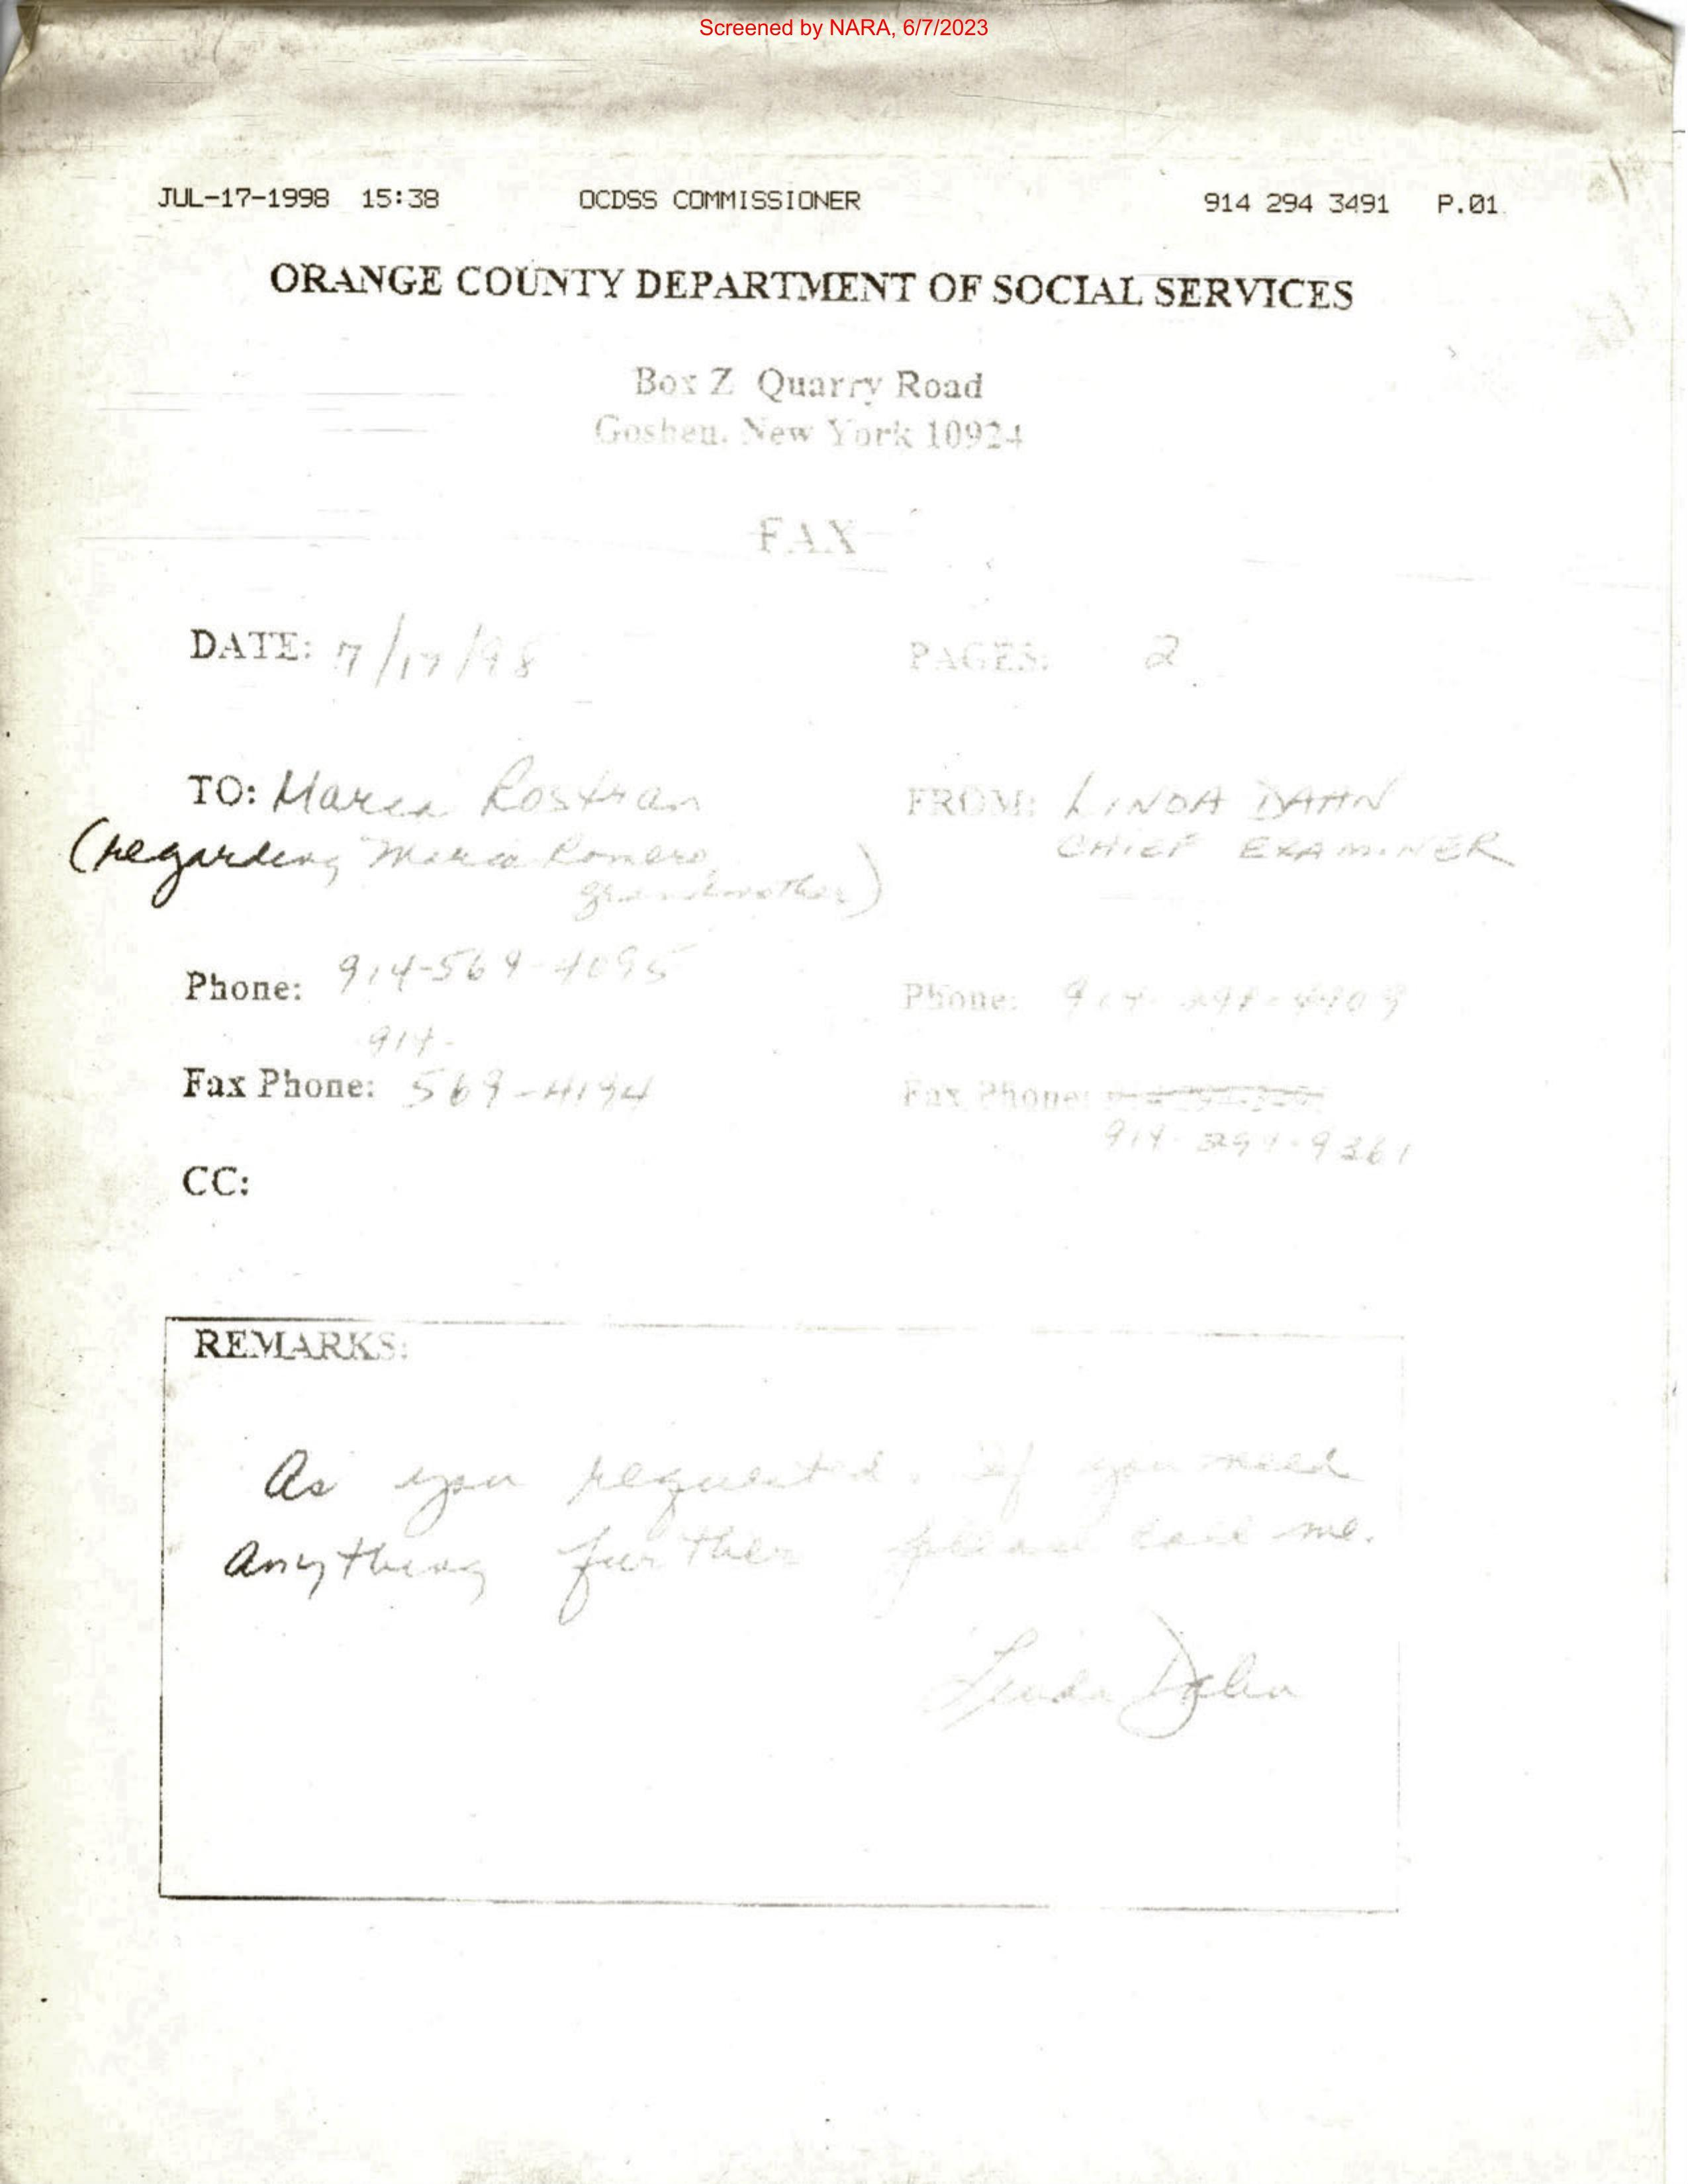 Screened by NARA, 6/7/2023
JUL-17-1998 15:38 OCDSS COMMISSIONER 914 294 3491 P.01
ORANGE COUNTY DEPARTMENT OF SOCIAL SERVICES
Box Z Quarry Road
Goshen, New York 10924
FAX
DATE: 7/17/98 PAGES: 2
TO: Rostran FROM: LINDA DAHN
(regarding Maria Romero, CHIEF EXAMINER
grandmother)
Phone: 914-569-4095 Phone:
914-
Fax Phone: 569-4194 Fax Phone:
CC:
REMARKS:
As you requested. If you need
anything further please call me.
Linda Dahn